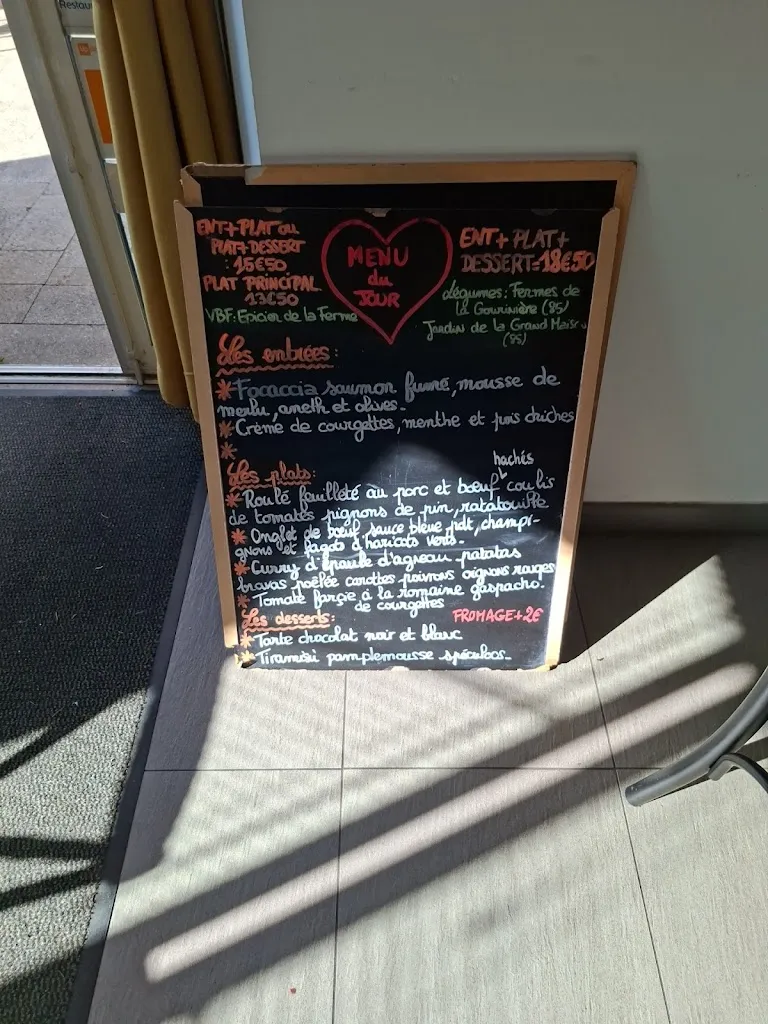 Restau
ENT+PLAT OU
PLAT+DESSERT
:16€50
PLAT PRINCIPAL
13€50
VBF: Epicier de la Ferme
MENU
du
JOUR
ENT+PLAT+
DESSERT=18€50
Légumes: Fermes de
la Gourinière (85)
Jardin de la Grand Maison
(85)
Les entrées:
*Focaccia saumon fumé, mousse de
merlu, aneth et olives.
*Crème de courgettes, menthe et pois chiches
*
Les plats:
hachés
*Roulé feuilleté au porc et bœuf coulis
de tomates pignons de pin, ratatouille
*Onglet de bœuf sauce bleue pdt, champi-
gnons et fagots d'haricots verts.
*Curry d'épaule d'agneau patatas
bravas poêlée carottes poivrons oignons rouges
*Tomate farçie à la romaine gaspacho.
de courgettes
FROMAGE+2€
Les desserts:
*Tarte chocolat noir et blanc
*Tiramisu pamplemousse spéculoos.